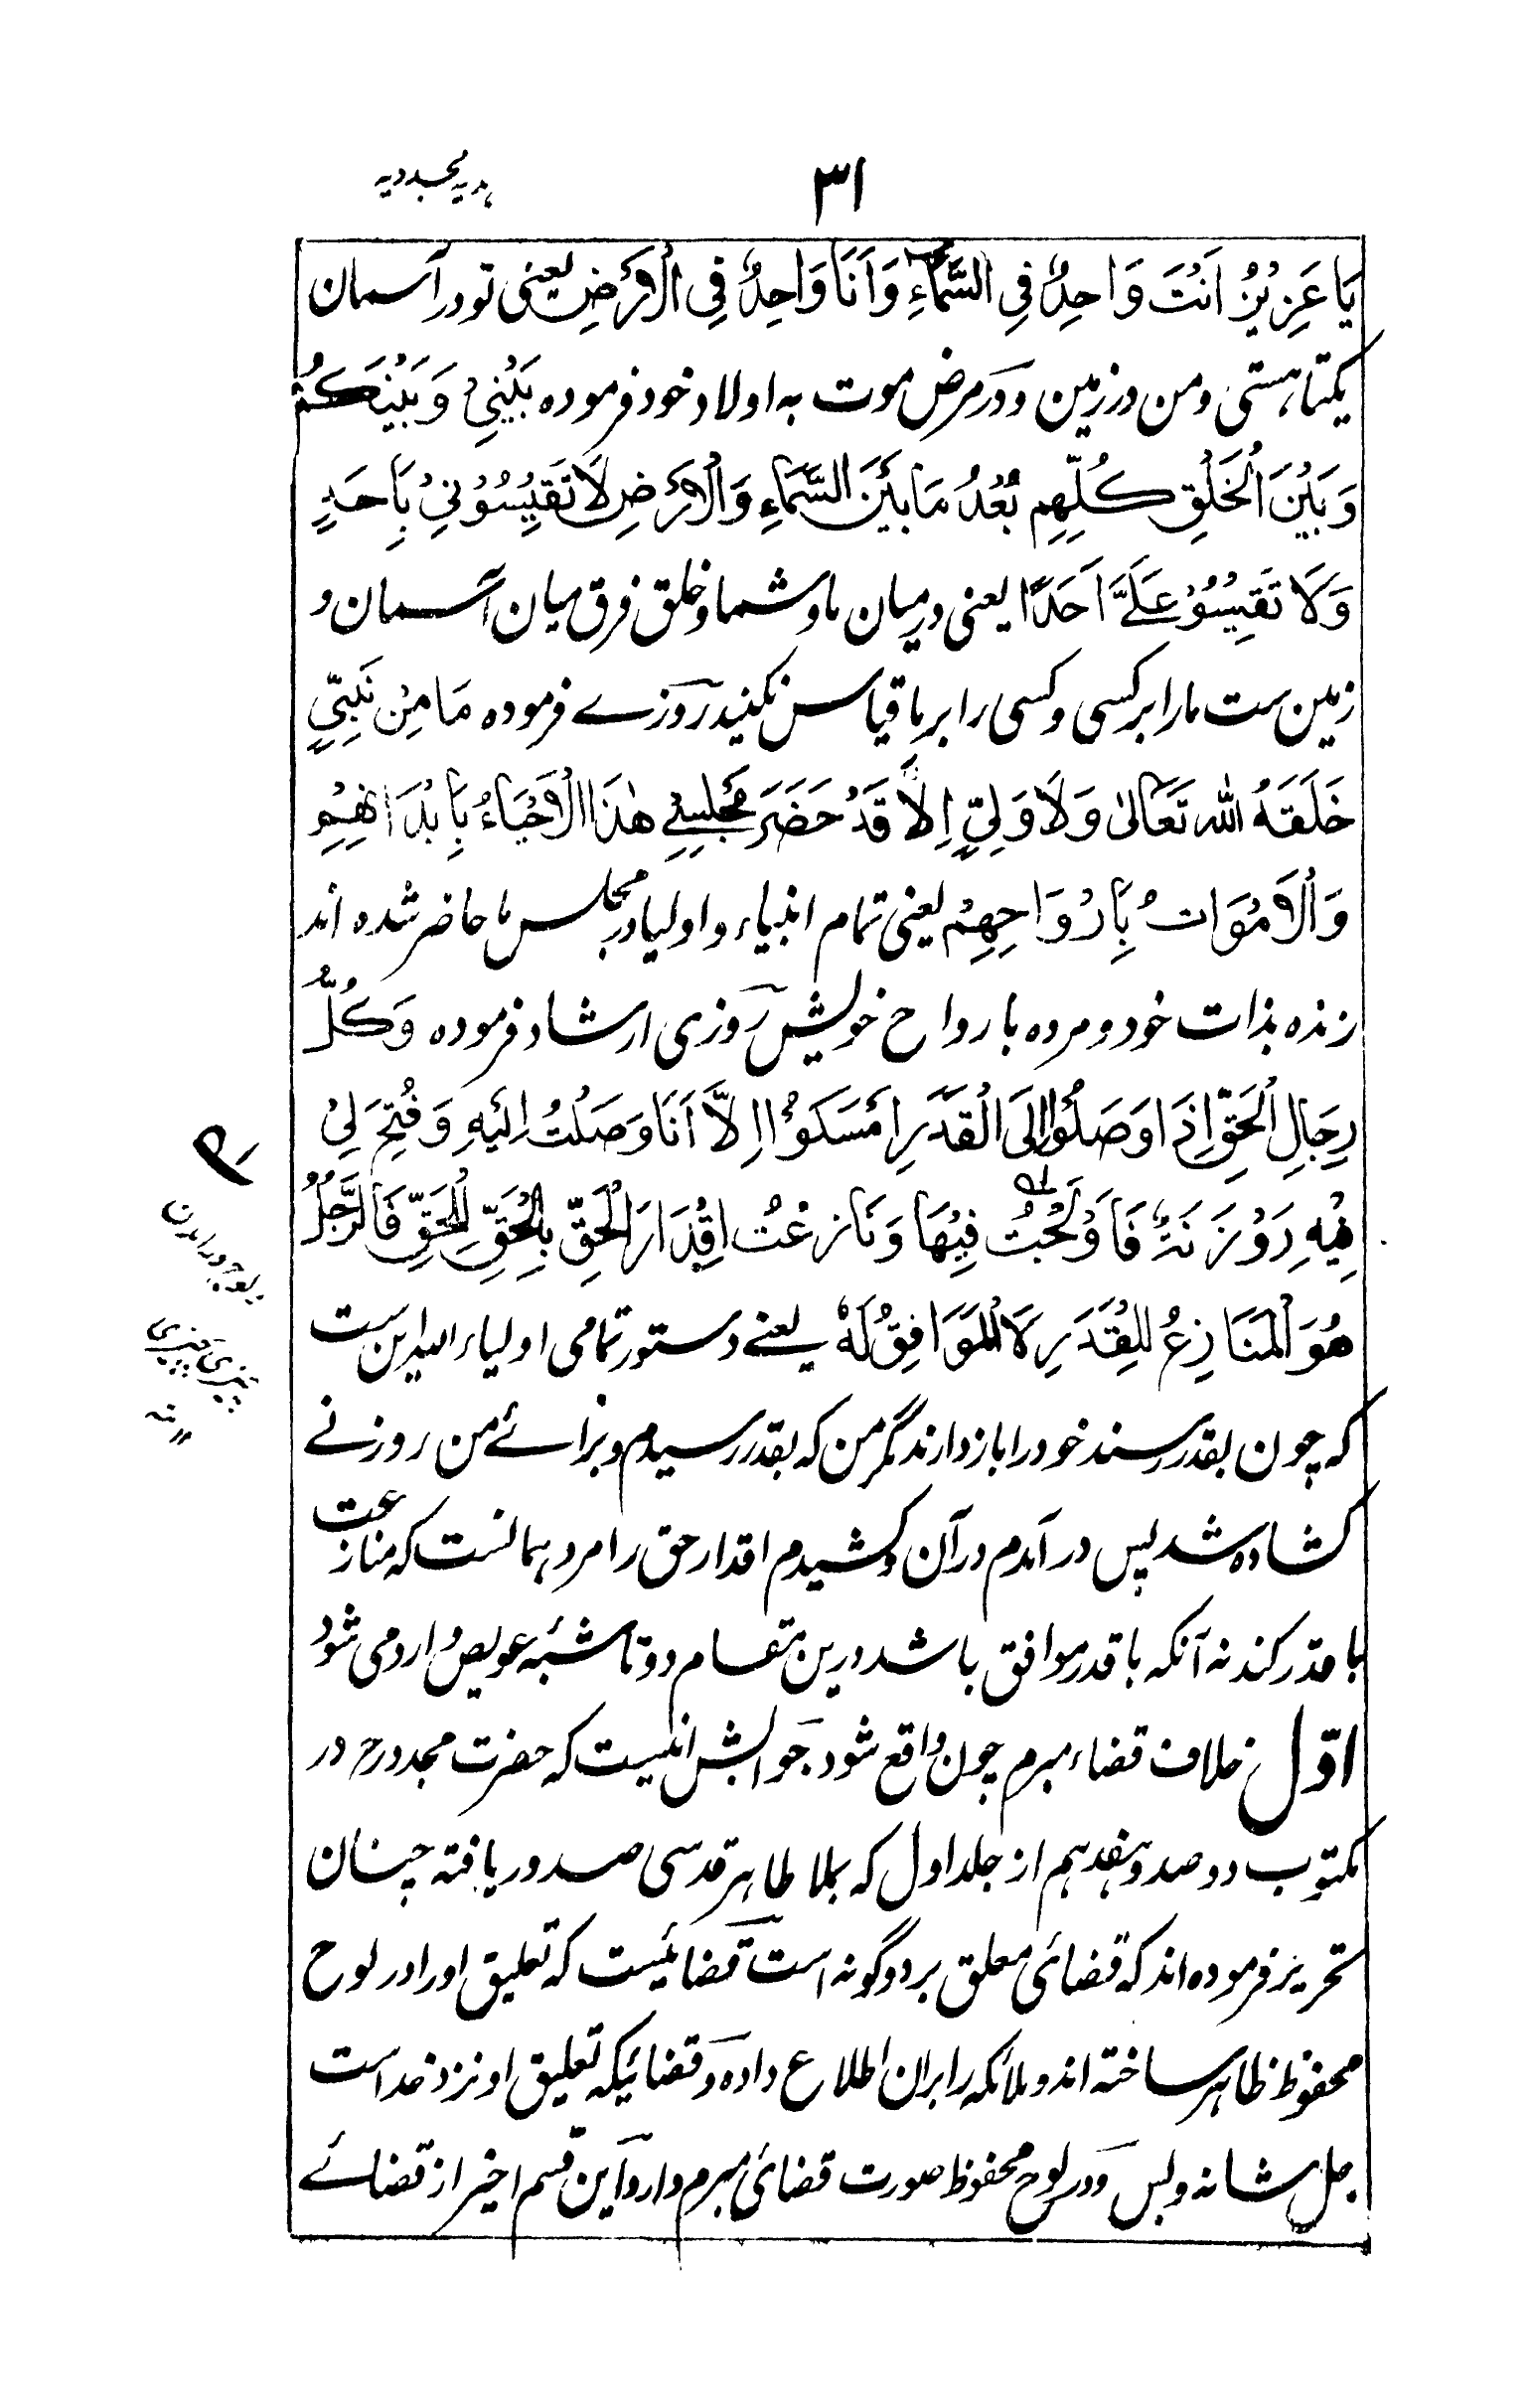 ۳۱
ہدیہ مجددیہ
يَا عَزِيْزُ اَنْتَ وَاحِدٌ فِي السَّمَاءِ وَاَنَا وَاحِدٌ فِي الْاَرْضِ یعنی تو در آسمان
یکتا ہستی ومن در زمین ودر مرض موت به اولاد خود فرموده بَيْنِيْ وَبَيْنَكُمْ
وَبَيْنَ الْخَلْقِ كُلِّهِمْ بُعْدُ مَا بَيْنَ السَّمَاءِ وَالْاَرْضِ لَا تَقِيْسُوْنِيْ بِاَحَدٍ
وَلَا تَقِيْسُوْ عَلَيَّ اَحَدًا یعنی درمیان ما وشما وخلق فرق میان آسمان و
زمین ست مارا بر کسی وکسی را بر ما قیاس نکنید روزے فرموده مَا مِنْ نَبِيٍّ
خَلَقَهُ اللّٰہ تَعَالٰى وَلَا وَلِيٍّ اِلَّا قَدْ حَضَرَ مَجْلِسِيْ هٰذَا الْاَحْيَاءُ بِاَبْدَانِهِمْ
وَالْاَمْوَاتُ بِاَرْوَاحِهِمْ یعنی تمام انبیاء واولیا در مجلس ما حاضر شده اند
زنده بذات خود ومرده بارواح خویش روزی ارشاد فرموده وَكُلُّ
رِجَالِ الْحَقِّ اِذَا وَصَلُوْا اِلَى الْقَدَرِ اَمْسَكُوْا اِلَّا اَنَا وَصَلْتُ اِلَيْهِ وَفُتِحَ لِيْ
فِيْهِ رَوْزَنَةٌ فَاَوْلَجْتُ فِيْهَا وَنَازَعْتُ اَقْدَارَ الْحَقِّ بِالْحَقِّ لِلْحَقِّ فَالرَّجُلُ
هُوَ الْمُنَازِعُ لِلْقَدَرِ لَا الْمُوَافِقُ لَهٗ یعنے دستور تمامی اولیاء الله این ست
که چون بقدر رسند خود را باز دارند مگر من که بقدر رسیدم وبرائے من روزنے
کشاده شد پس در آمدم در آن وکشیدم اقدار حق را مرد ہمانست که منازعت
با قدر کند نه آنکه با قدر موافق باشد درین مقام دو تا شبہٴ عویص وارد می شود
اوّل خلاف قضاء مبرم چون واقع شود جوابش اینست که حضرت مجدد رح در
مکتوب دو صد وہفدہم از جلد اول که بملا طاہر قدسی صدور یافته چنان
تحریر فرموده اند که قضائی معلق بر دو گونه است قضائیست که تعلیق اورا در لوح
محفوظ ظاہر ساخته اند وملائکه را بران اطلاع داده وقضائیکه تعلیق او نزد خداست
جل شانه وبس ودر لوح محفوظ صورت قضائی مبرم دارد واین قسم اخیر از قضائے